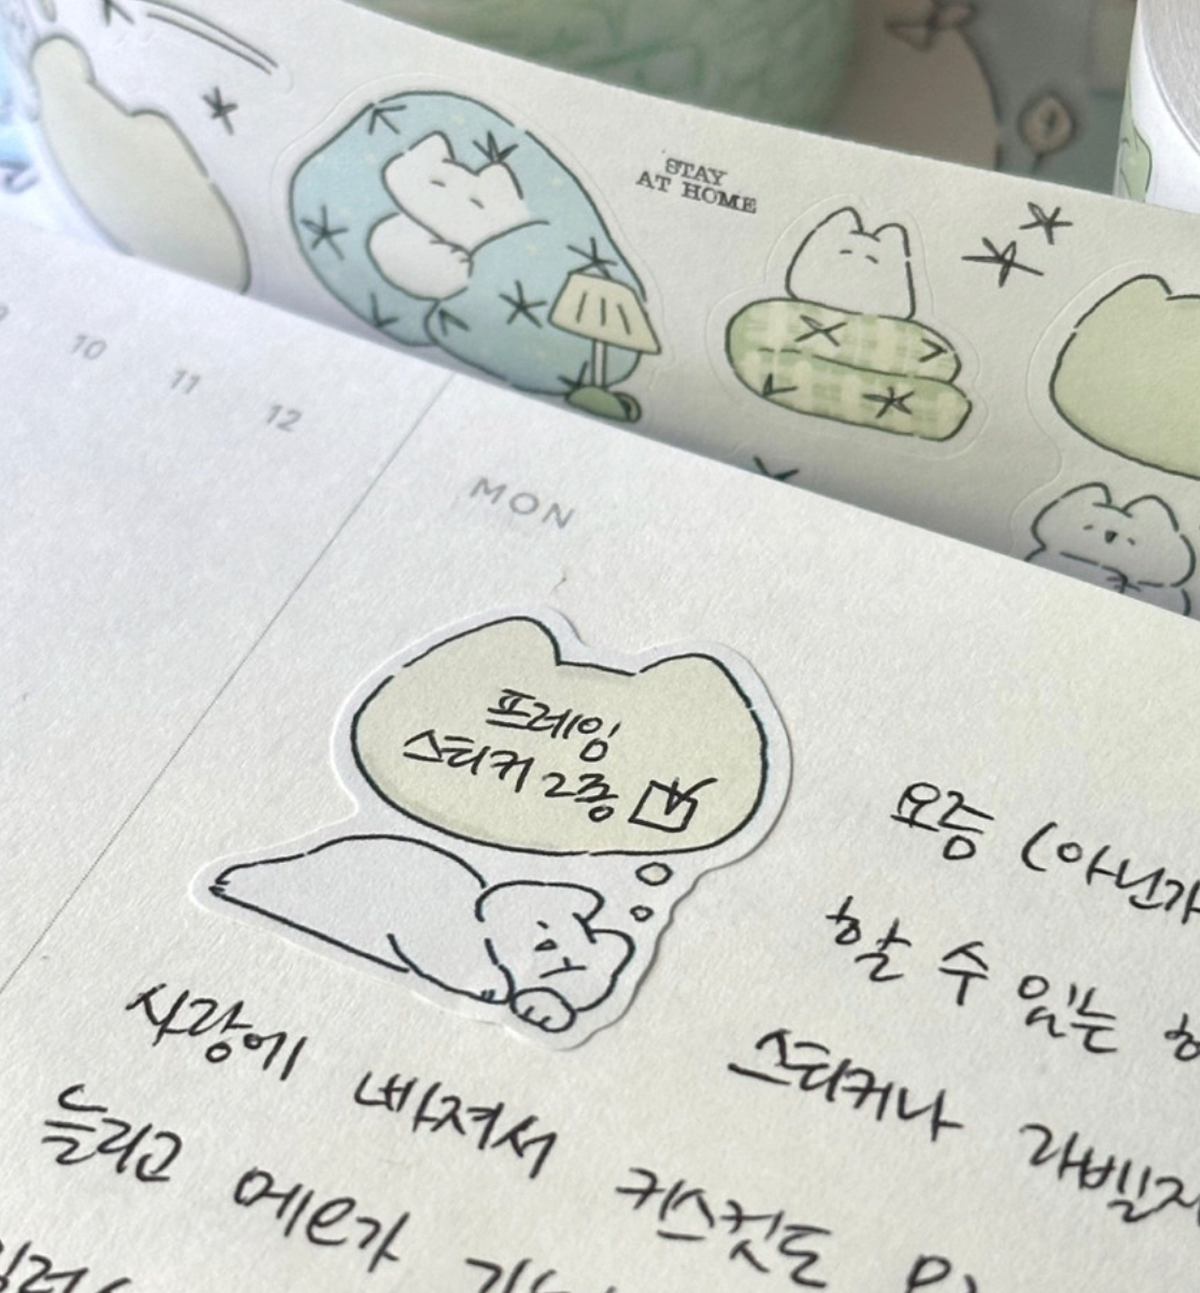 STAY
AT HOME
10
11
12
MON
프레임
스티커 2종
요즘 (아닌가
할 수 있는
스티커나 라벨지
사랑에 빠져서 키스컷도
늘리고